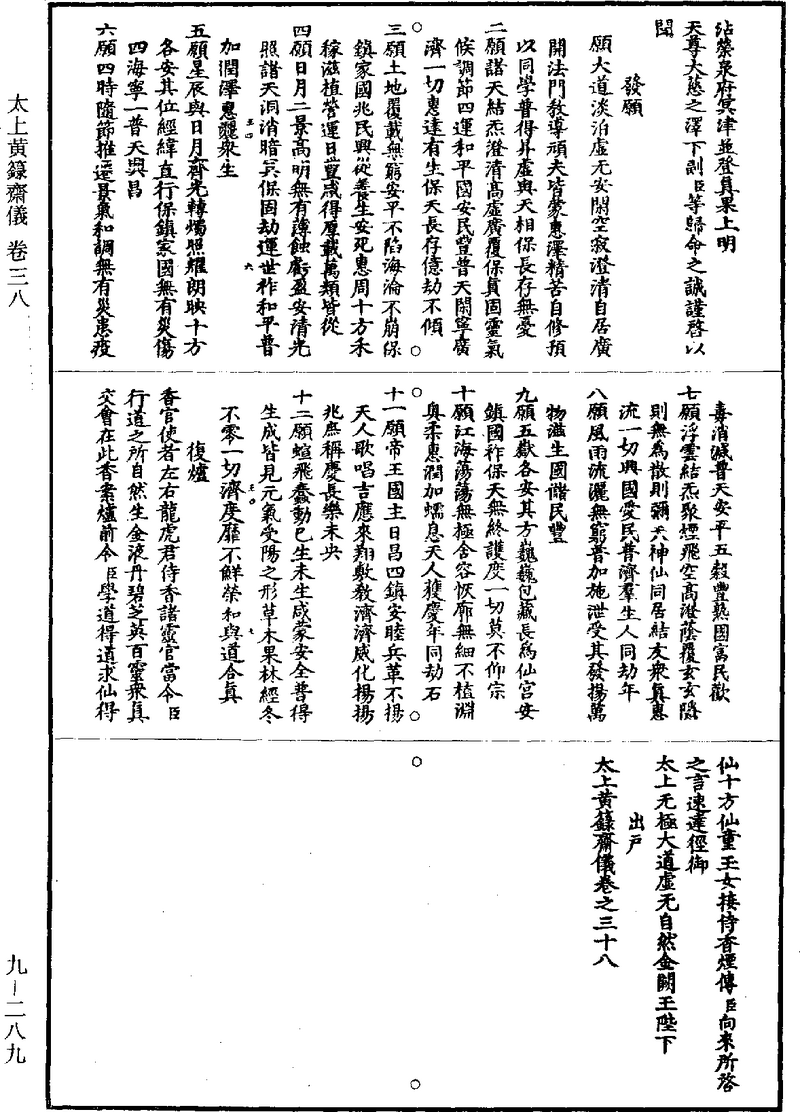 沾榮泉府冥津並登真果上明
天尊大慈之澤下副臣等歸命之誠謹啓以
聞
發願
願大道淡泊虛无安閑空寂澄清自居廣
開法門教導頑夫皆蒙惠澤精苦自修預
以同學普得昇虛與天相保長存無憂
二願諸天結炁澄清高虛廣覆保真固靈氣
候調節四運和平國安民豐普天閑寧廣
濟一切惠逮有生保天長存億劫不傾
三願土地覆載無窮安平不陷海淪不崩保
鎮家國兆民興從養生安死惠周十方禾
稼滋植營運日豐咸得厚載萬類皆從
四願日月二景高明無有薄蝕虧盈安清光
照諸天洞消暗冥保固劫運世祚和平普
加潤澤惠麗衆生
五願星辰與日月齊光轉燭照耀朗映十方
各安其位經緯直行保鎮家國無有災傷
四海寧一普天興昌
六願四時隨節推遷景氣和調無有災患疫
毒消滅普天安平五穀豐熟國富民歡
七願浮雲結炁聚煙飛空高澄蔭覆玄玄隱
則無為散則彌天神仙同居結友衆真惠
流一切興國愛民普濟羣生人同劫年
八願風雨流灑無窮普加施泄受其發揚萬
物滋生國儲民豐
九願五嶽各安其方巍巍包藏長為仙宮安
鎮國祚保天無終護度一切莫不仰宗
十願江海蕩蕩無極含容恢廓無細不植淵
奥柔惠潤加蠕息天人獲慶年同劫石
十一願帝王國主日昌四鎮安睦兵革不揚
天人歌唱吉應來翔敷教濟濟威化揚揚
兆庶稱慶長樂未央
十二願蝖飛蠢動已生未生咸蒙安全普得
生成皆見元氣受陽之形草木果林經冬
不零一切濟度靡不鮮榮和與道合真
復爐
香官使者左右龍虎君侍香諸靈官當令臣
行道之所自然生金液丹碧芝英百靈衆真
交會在此香案爐前令臣學道得道求仙得
仙十方仙童玉女接侍香煙傳臣向來所啓
之言速達徑御
太上无極大道虛无自然金闕玉陛下
出戶
太上黃籙齋儀卷之三十八
太上黄籙齋儀 卷三八
九—二八九